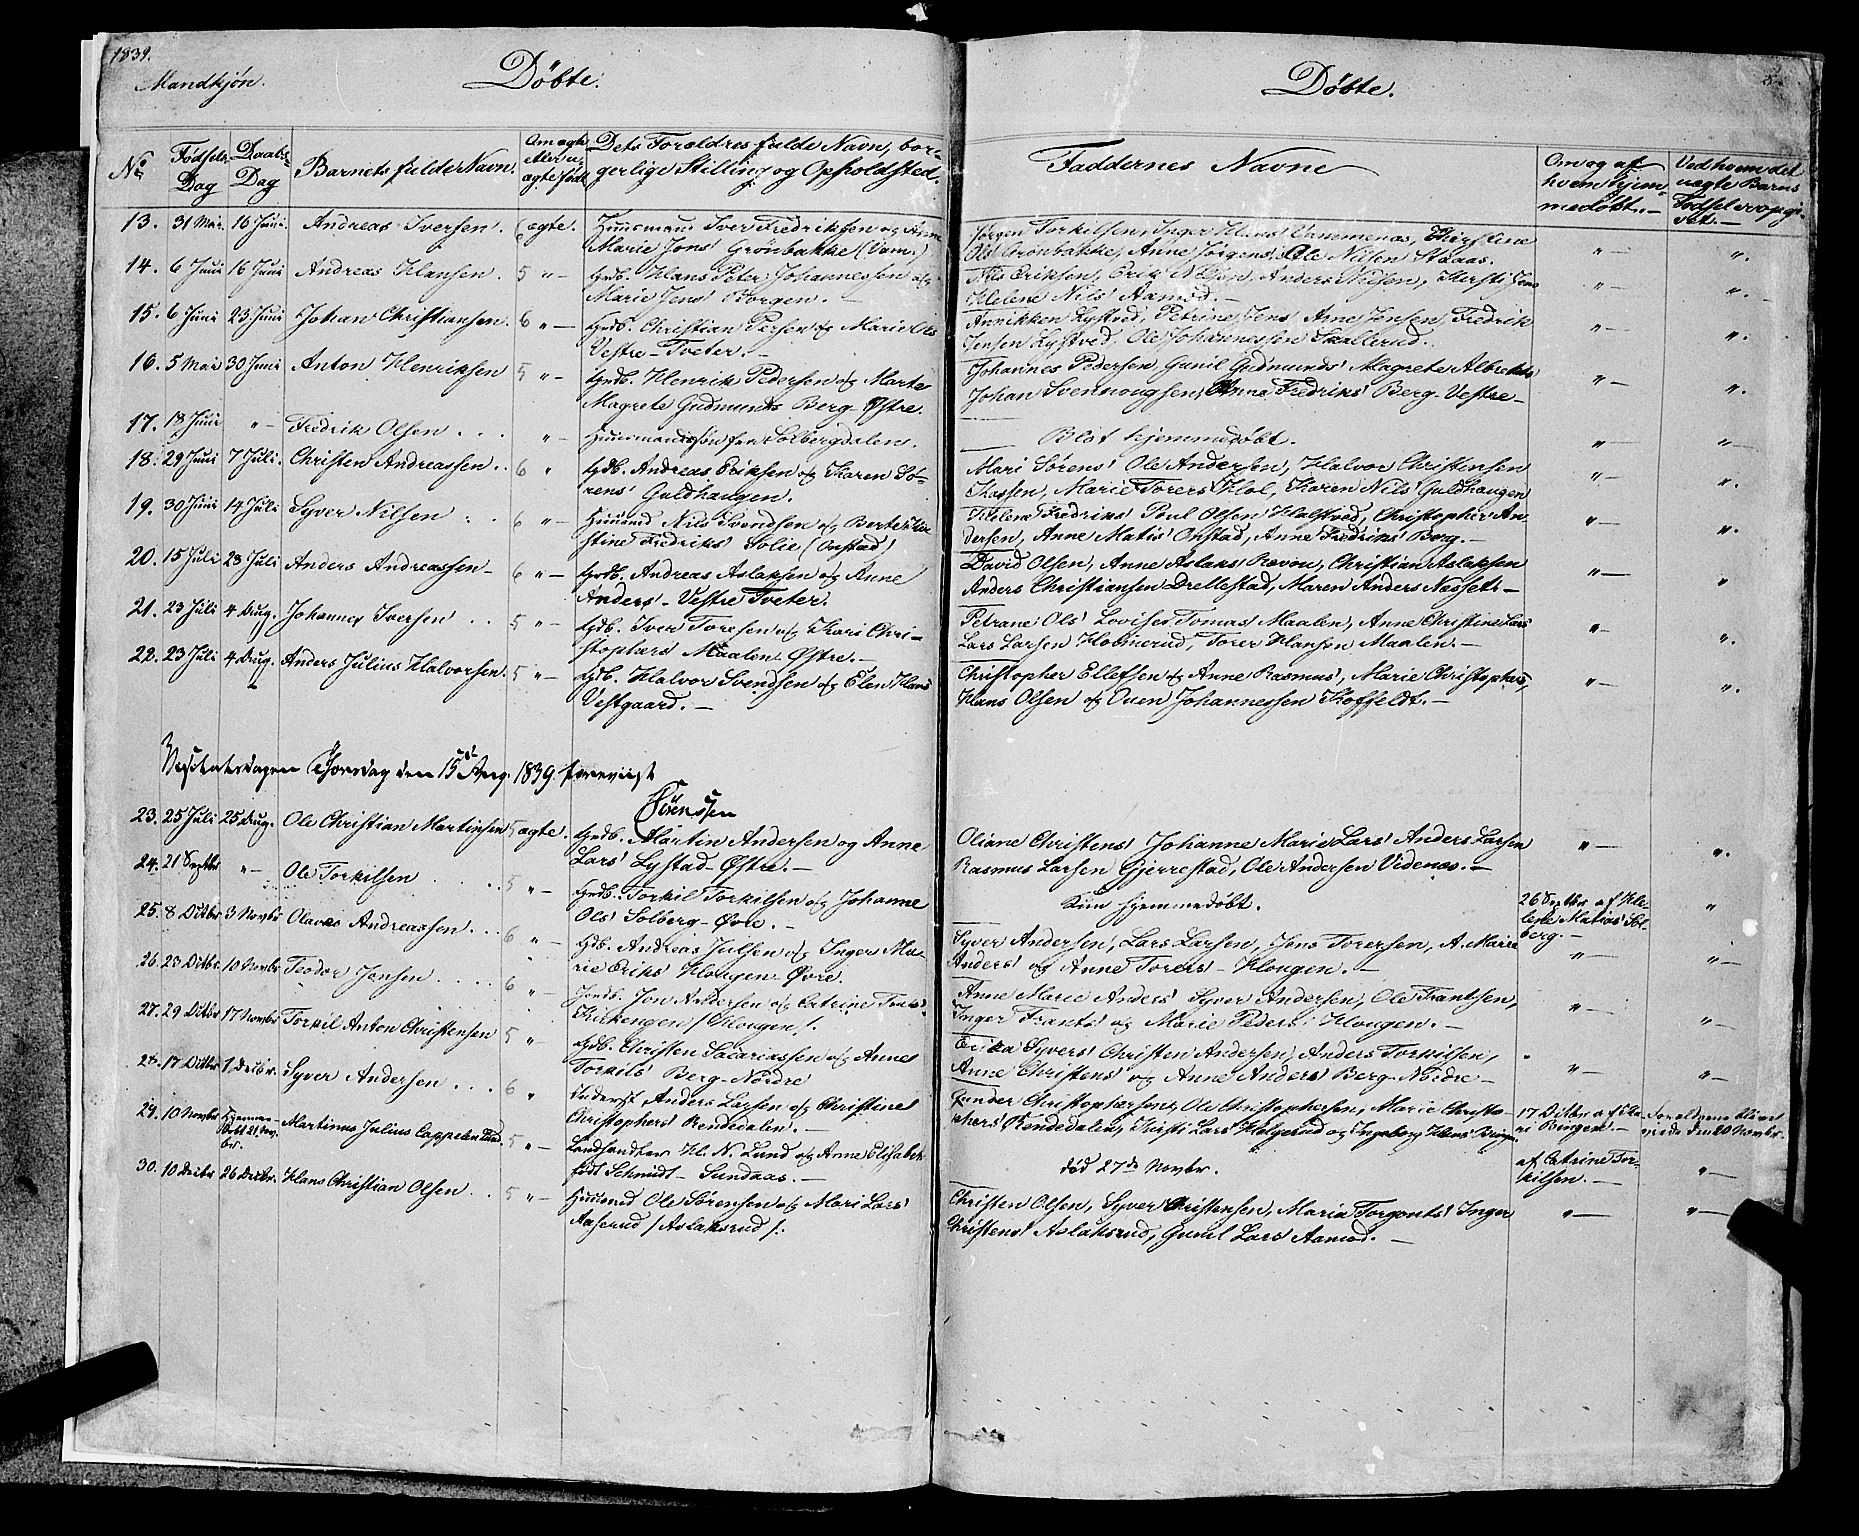 1839.
Mandkjøn.
Døbte.
No
Fødsels Dag
Daabs Dag
Barnets fulde Navn.
Om ægte eller uægte født
Dets Forældres fulde Navn, borgerlige Stilling og Opholdsted.
13. 31 Mai. 16 Juni Andreas Iversen. 6 ægte. Huusmand Iver Fredriksen og Anne
Marie Jons' Grönbakke (Vam.)
14. 6 Juni 16 Juni Andreas Hansen. 5 " — Gdb. Hans Peter Johannessen og
Marie Jens' Borgen. —
15. 6 Juni 23 Juni Johan Christiansen. 6 " — Gdb. Christian Persen og Marie Ols
Vestre-Tveter. —
16. 5 Mai 30 Juni Anton Henriksen 5 " — Gdb. Henrik Pedersen og Marte
Magrete Gudmunds Berg Østre.
17. 18 Juni " — Fredrik Olsen . . . " — Huusmandssøn fra Solbergdalen.
18. 29 Juni 7 Juli. Christen Andreassen . . 6 " Gdb. Andreas Eriksen og Karen Sø-
rens' Guldhaugen.
19. 30 Juni 14 Juli Syver Nilsen . . 6 " — Huusmd Nils Svendsen og Berte Chri-
stine Fredriks' Solie (Onstad)
20. 15 Juli 28 Juli Anders Andreassen — 6 " — Gdb. Andreas Aslaksen og Anne
Anders' — Vestre Tveter.
21. 23 Juli 4 Aug. Johannes Iversen . . 5 " — Gdb. Iver Toresen og Kari Chri-
stophers' Maalen Østre. —
22. 23 Juli 4 Aug. Anders Julius Halvorsen. 5 " — Gdb. Halvor Svendsen og Elen Hans
Vestgaard. —
Visitatsdagen Torsdag den 15de Aug. 1839. foreviist
Sørenssen
23. 25 Juli 25 Aug. Ole Christian Martinsen 5 ægte. Gdb. Martin Andersen og Anne
Lars' Lystad-Østre. —
24. 21 Septbr " — Ole Torkilsen . . . 5 " — Gdb. Torkil Torkilsen og Johanne
Ols' Solberg-Øvre. —
25. 8 Octbr 3 Novbr Olaves Andreassen . . . 6 " — Gdb. Andreas Julsen og Inger Ma-
rie Eriks' Hougen-Øvre.
26. 23 Octbr. 10 Novbr Teodor Jonsen . . . . 6 " — Jordb. Jon Andersen og Catrine
Kirkengen /Hougen/.
27. 29 Octbr 17 Novbr Torkil Anton Christensen 5 " — Gdb. Christen Sacariassen og Anne
Torkils' Berg-Nordre
28. 17 Octbr 1 Decbr. Syver Andersen . . . 6 " Inderst Anders Larsen og Christine
Christophers' Rendedalen. —
29. 10 Novbr Hjemme-døbt 21. Novbr. Martinus Julius Cappelen Lund 5 " — Landhandler H. N. Lund og Anne Elisabeth
født Schmidt — Sundaas. —
30. 10 Decbr 26 Decbr. Hans Christian Olsen . . 5 " — Huusmd Ole Sørensen og Mari Lars'
Aaserud /Aslaksrud/.
Døbte.
5.
Faddernes Navne
Om og af hvem hjemmedøbt. —
Ved hvem det uægte Barns Fødsel er opgivet. —
Jørgen Torkilsen, Inger Hans' Vammenæs, Kirstine
Ols' Grönbakke, Anne Jørgens', Ole Nilsen Staaas. " — ".
Nils Eriksen, Erik Nilsen, Anders Nilsen, Kersti Jens
Helene Nils' Aamod. — " — ". —
Annikken Lystved, Petrine Jens' Arne Jensen, Fredrik
Jensen Lystved, Ole Johannessen Skallerud. " — ".
Johannes Pedersen, Gunil Gudmunds' Magrete Albrekts
Johan Svennougsen, Anne Fredriks' Berg Vestre — " — ".
— Blot hjemmedøbt. " — " —
Mari Sørens' Ole Andersen, Halvor Christensen
Kossen, Marie Torers' Hol, Karen Nils' Guldhaugen " — ".
Helene Fredriks' Poul Olsen Halstved, Christopher An-
dersen, Anne Matis' Onstad, Anne Fredriks' Berg. — " — ".
David Olsen, Anne Aslaks' Ravon, Christian Aslaksen
Anders Christiansen Drellestad, Maren Anders' Næsset. — " — "
Petrane Ols' Lovise Tomas' Maalen, Anne Christine Lars
Lars Larsen Holmerud, Torer Hansen Maalen. — " — ".
Christopher Ellefsen og Anne Rasmus', Marie Christophers,
Hans Olsen og Ouen Johannessen Hoffeldt. — " — ".
Oliane Christens' Johanne Marie Lars' Anders Larsen
Rasmus Larsen Gjerrestad, Ole Andersen Videnæs. — " — ".
Kun hjemmedøbt. 26 Septbr af He-
lene Matias' Sol-
berg. — "
Syver Andersen, Lars Larsen, Jens Torersen, A. Marie
Anders' og Anne Torers' — Hougen. — " — " —
Anne Marie Anders' Syver Andersen, Ole Frantsen,
Inger Frants' og Marie Peders' Hougen. — " — " —
Erika Syvers' Christen Andersen, Anders Torkilsen,
Anne Christens' og Anne Anders' Berg-Nordre — " — " —
Gunder Christophersen, Ole Christophersen, Marie Christo-
phers' Rendedalen, Kristi Lars' Holgerud og Ingeborg Hans' Bingen 17 Octbr af
Bingen. —
død 27de Novbr. af Catrine Tor-
kilsen. — " —
Christen Olsen, Syver Christensen, Maria Torgonts' Inger
Christens' Aslaksrud, Gunil Lars' Aamod. — " — " —